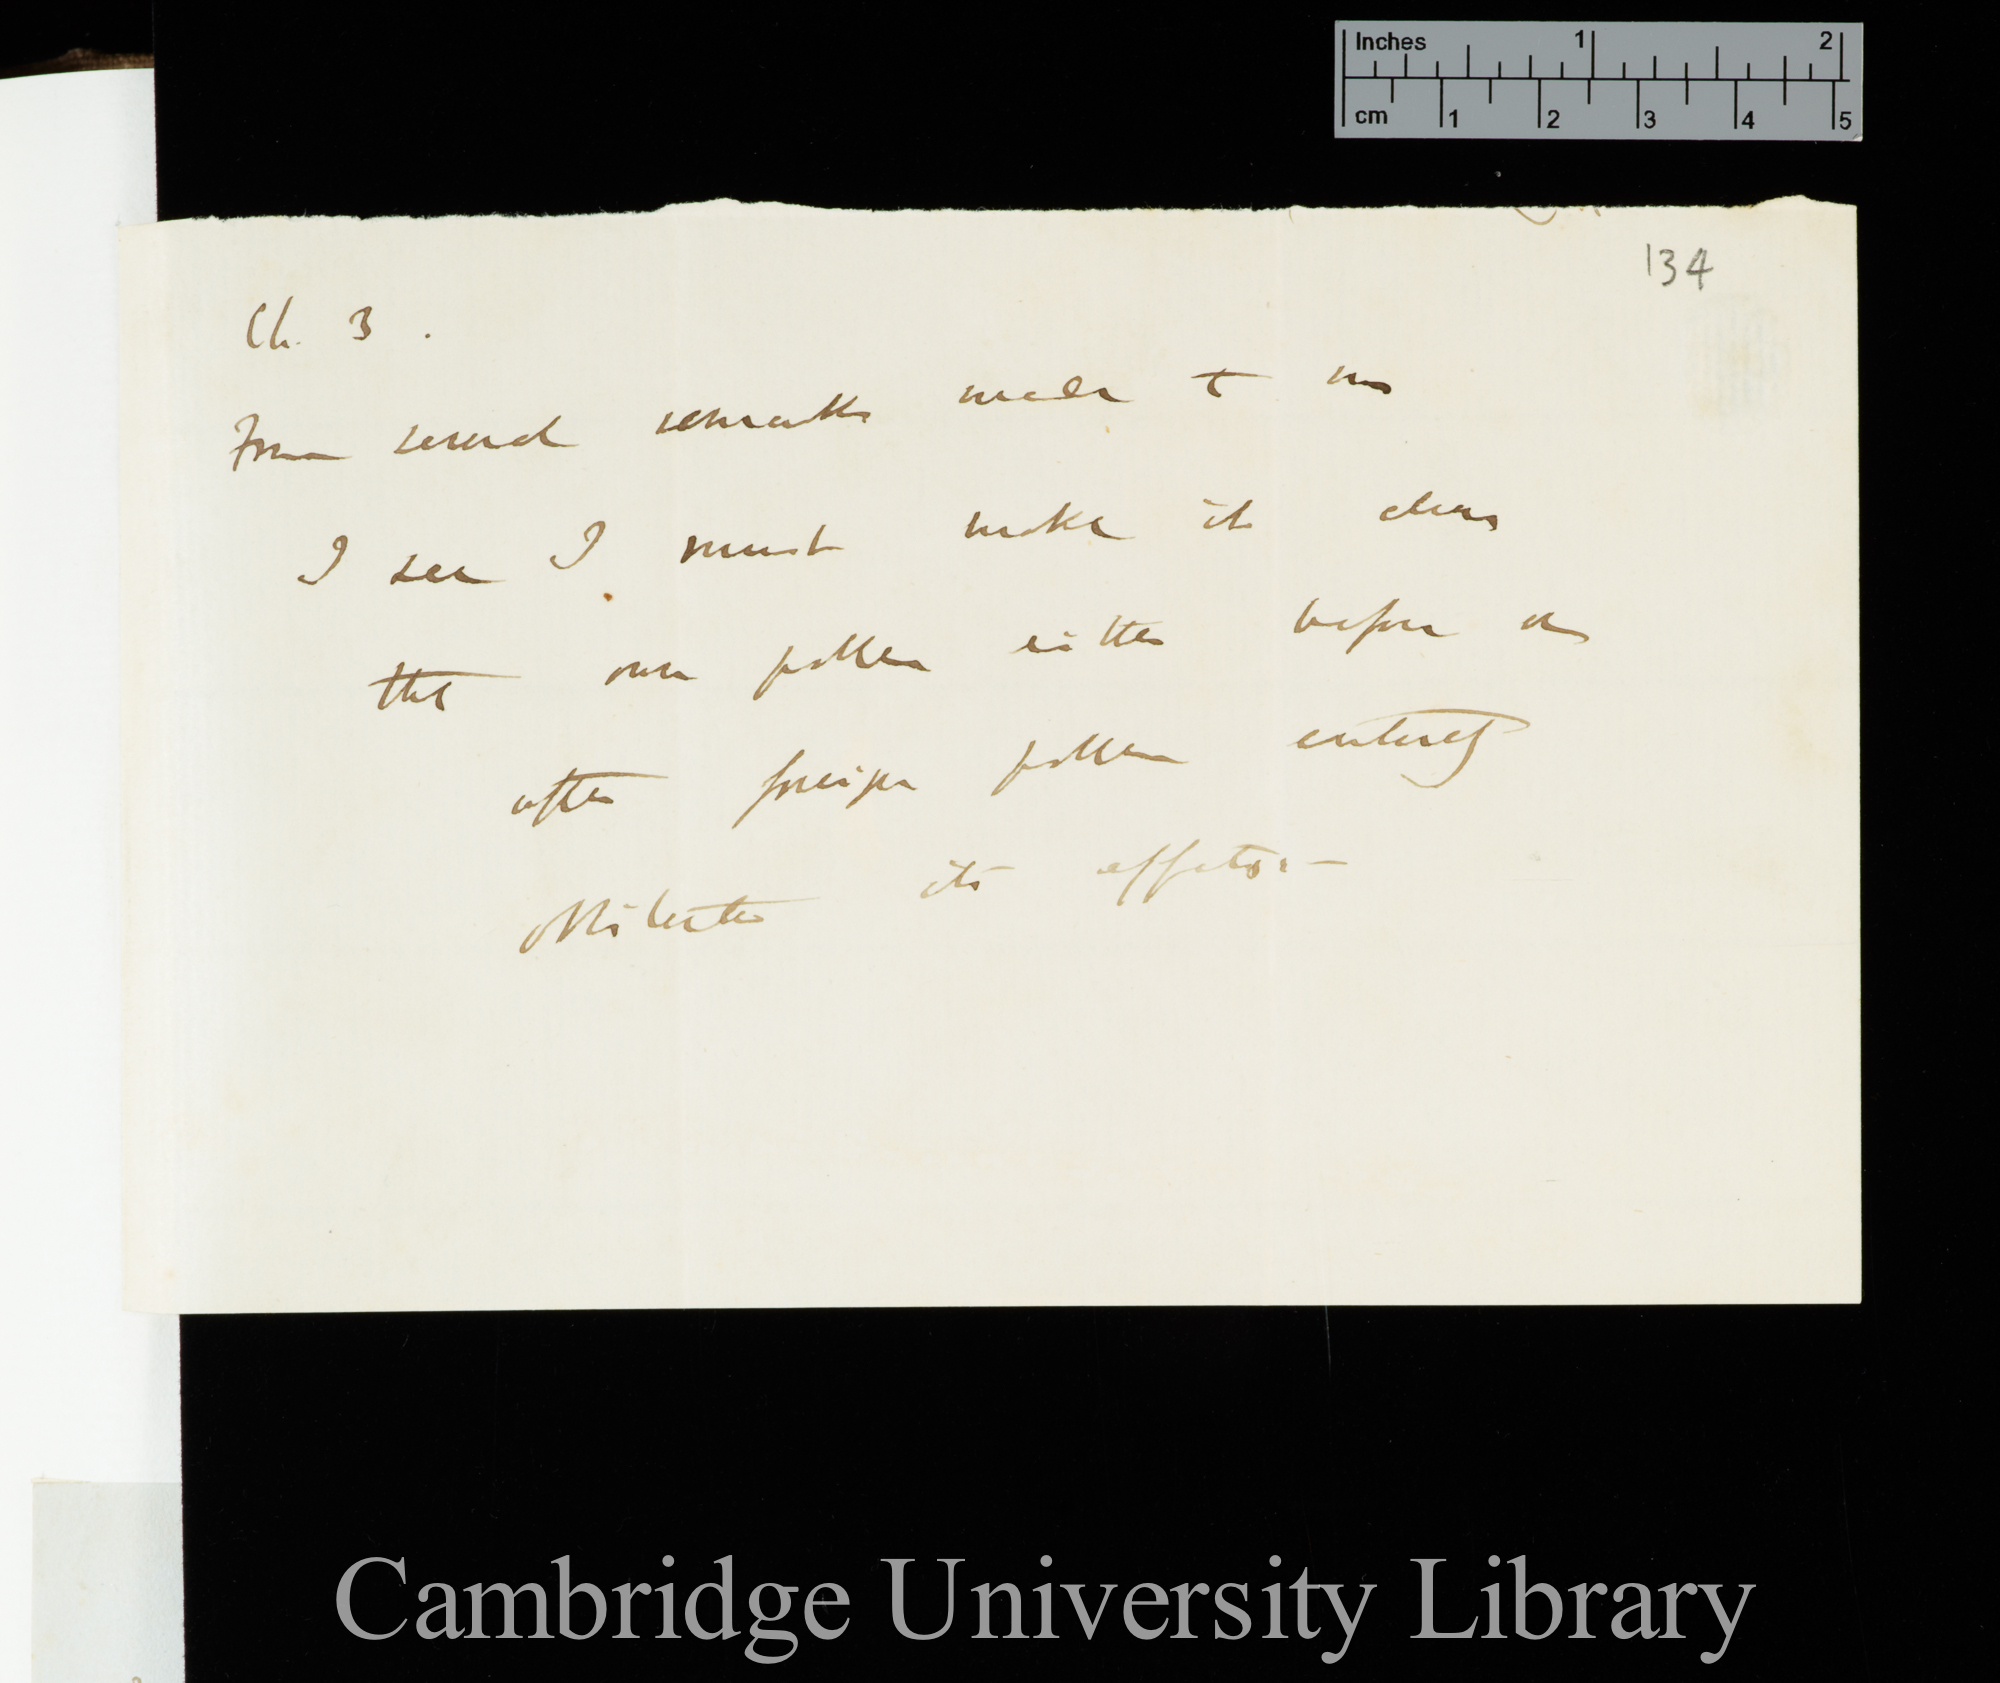 Inches 1 2
cm 1 2 3 4 5
134
Ch. 3.
From several remarks made to me
I see I must make it clear
that own pollen either before or
after foreign pollen entirely
obliterates its effects.—
Cambridge University Library